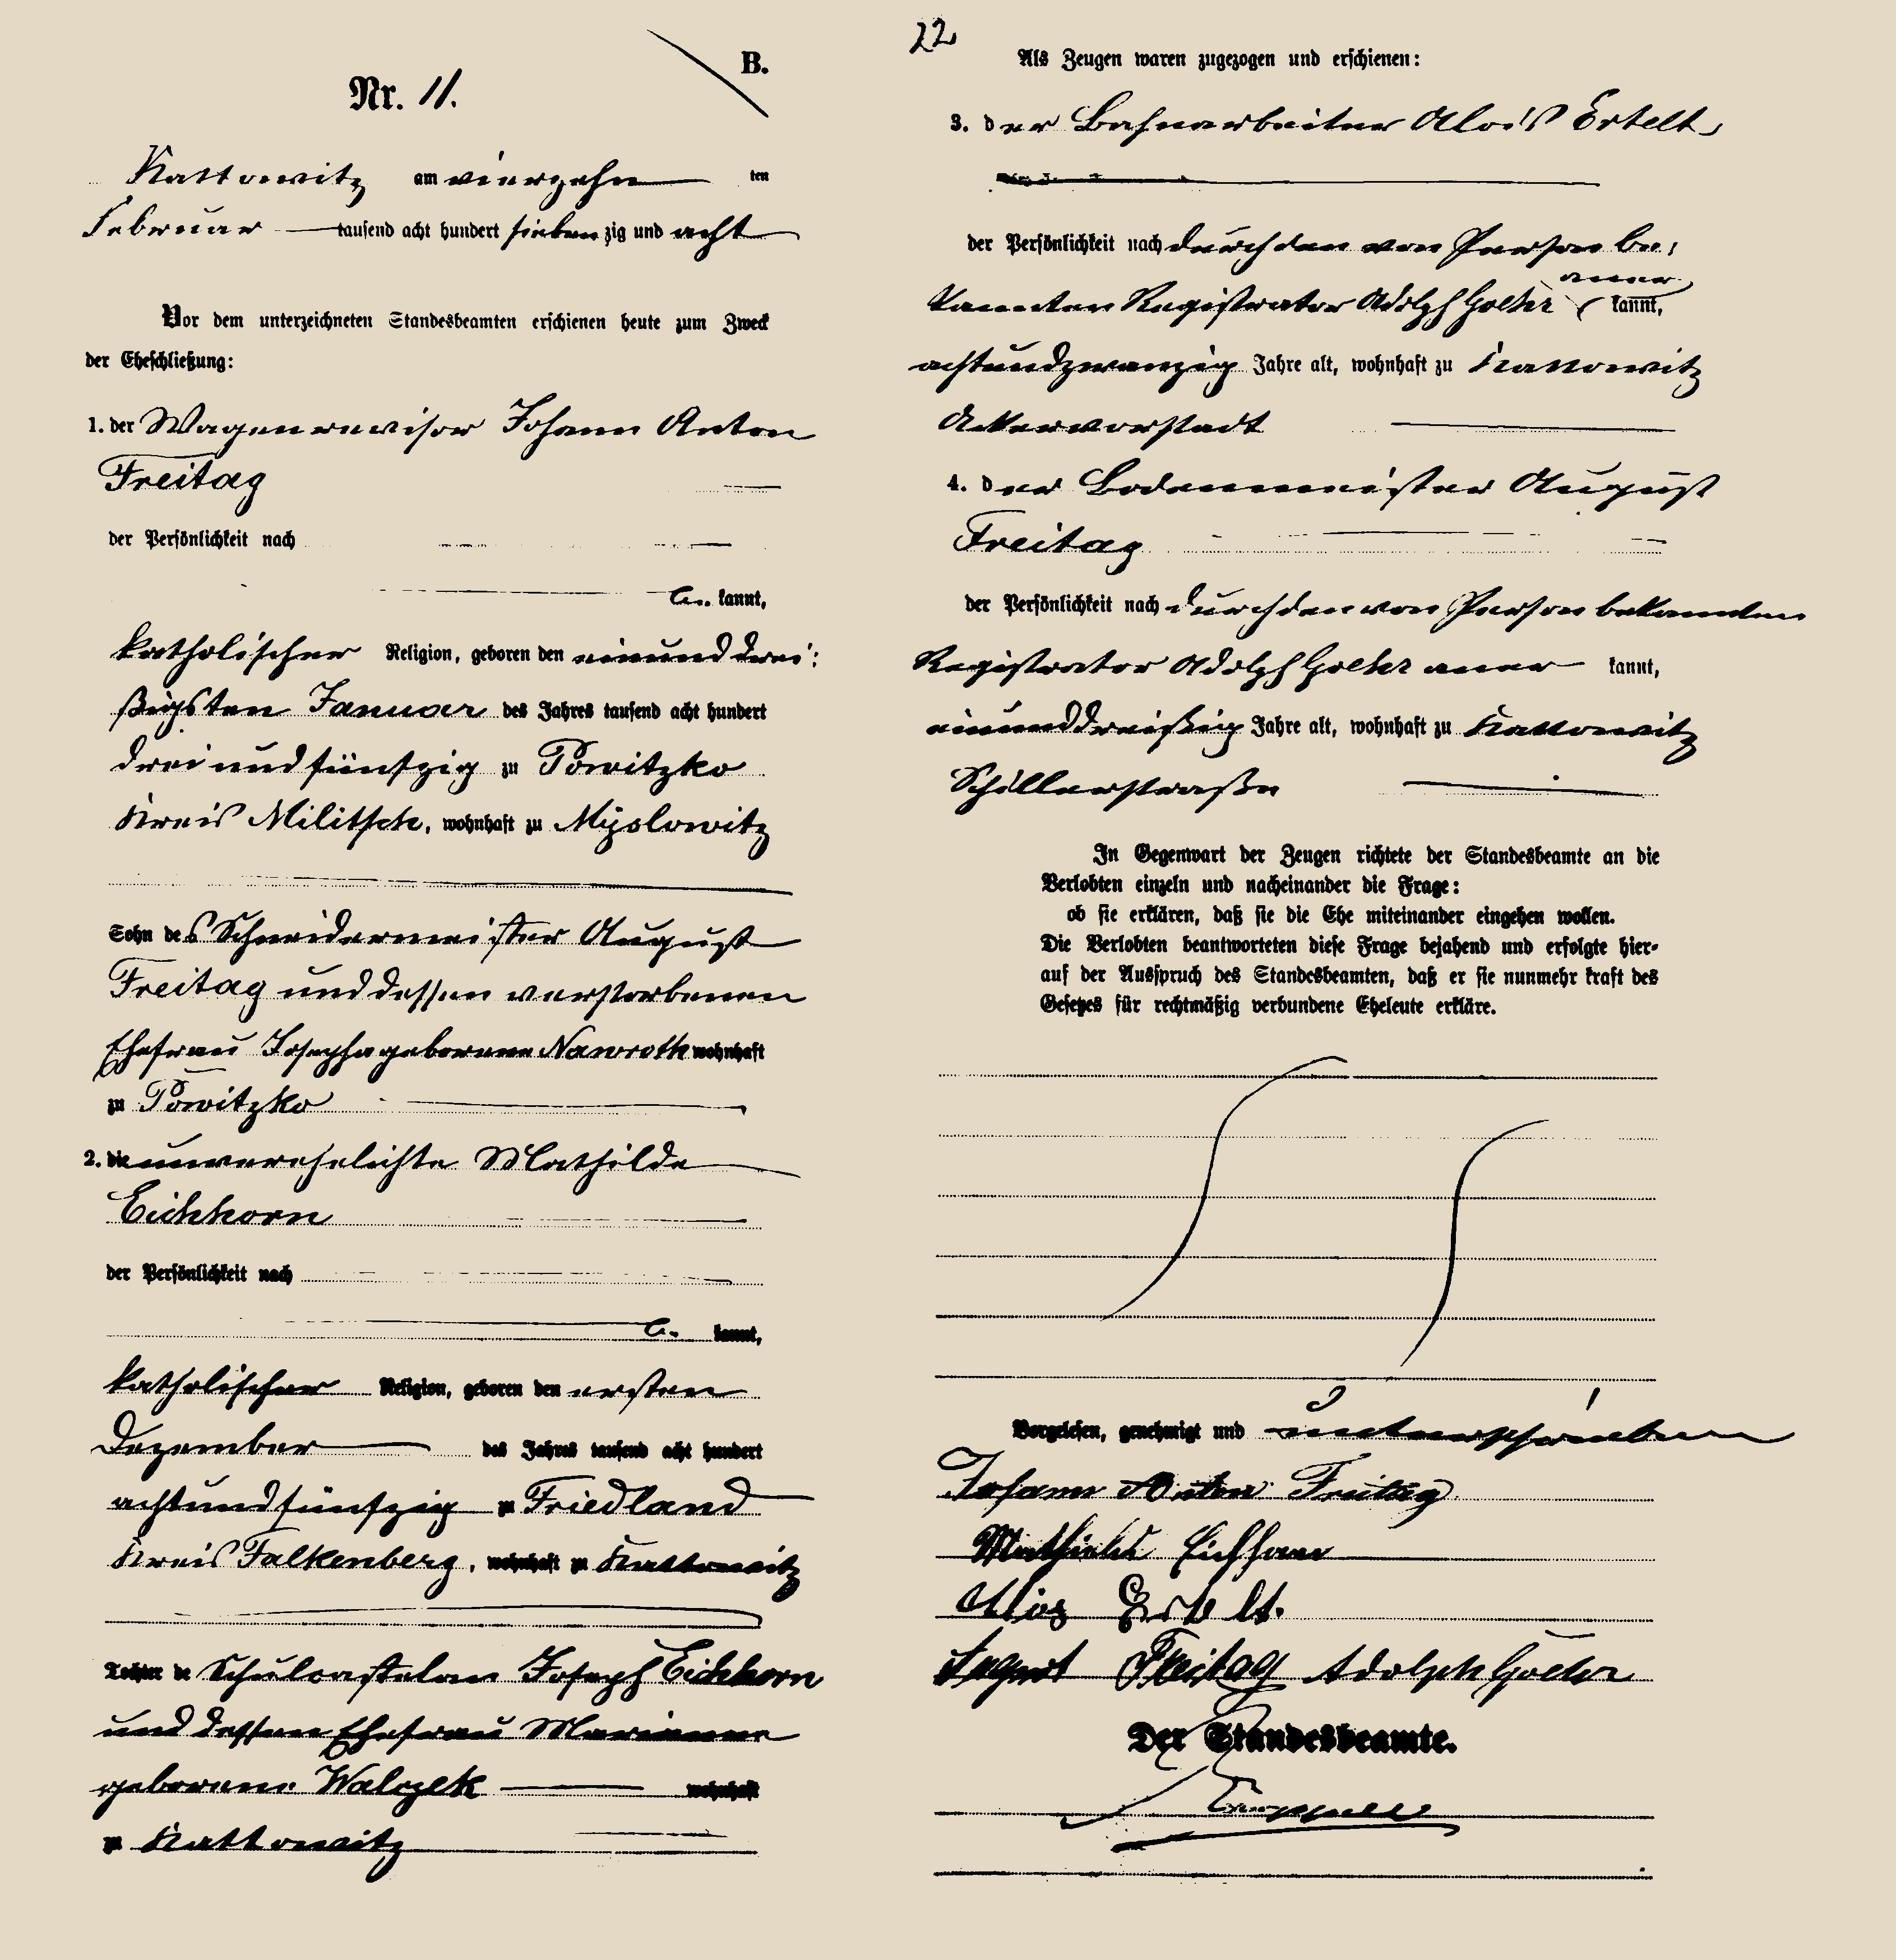 B.
Nr. 11.
Kattowitz am vierzehn ten
Februar tausend acht hundert sieben zig und acht
Vor dem unterzeichneten Standesbeamten erschienen heute zum Zweck
der Eheschließung:
1. der Wagenrevisor Johann Anton
Freitag
der Persönlichkeit nach
be kannt,
katholischer Religion, geboren den einunddrei:
ßigsten Januar des Jahres tausend acht hundert
drei und fünfzig zu Powitzko
Kreis Militsch, wohnhaft zu Myslowitz
Sohn des Schneidermeister August
Freitag und dessen verstorbenen
Ehefrau Josepha geborene Nawroth wohnhaft
zu Powitzko
2. die unverehelichte Mathilde
Eichhorn
der Persönlichkeit nach
be kannt,
katholischer Religion, geboren den ersten
Dezember des Jahres tausend acht hundert
achtundfünfzig zu Friedland
Kreis Falkenberg, wohnhaft zu Kattowitz
Tochter de Schulcastelan Joseph Eichhorn
und dessen Ehefrau Marianne
geborene Walczek wohnhaft
zu Kattowitz
22
Als Zeugen waren zugezogen und erschienen:
3. der Bahnarbeiter Alois Ertelt
der Persönlichkeit nach durch den von Person be:
kannten Registrator Adolph Goehr aner kannt,
achtundzwanzig Jahre alt, wohnhaft zu Kattowitz
Ackervorstadt
4. der Bodenmeister August
Freitag
der Persönlichkeit nach durch den von Person bekannten
Registrator Adolph Goehr aner kannt,
einunddreißig Jahre alt, wohnhaft zu Kattowitz
Schillerstraße
In Gegenwart der Zeugen richtete der Standesbeamte an die
Verlobten einzeln und nacheinander die Frage:
ob sie erklären, daß sie die Ehe miteinander eingehen wollen.
Die Verlobten beantworteten diese Frage bejahend und erfolgte hier-
auf der Ausspruch des Standesbeamten, daß er sie nunmehr kraft des
Gesetzes für rechtmäßig verbundene Eheleute erkläre.
Vorgelesen, genehmigt und unterschrieben
Johann Anton Freitag
Mathilde Eichhorn
Alois Ertelt.
August Freitag Adolph Goehr
Der Standesbeamte.